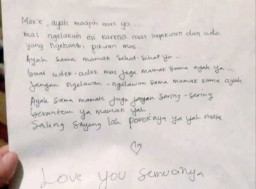 Mak'e, ayah maafin mas ya...
mas ngelakuin ini karena mas
yang ngebantu pikiran mas...
Ayah sama mamak sehat-sehat ya...
buat adek-adek mas jaga mamak sama ayah ya...
jangan ngelawan-ngelawan sama mamak sama ayah
Ayah sama mamak juga jangan sering-sering
berantem ya mak yah
Saling sayang lah pokoknya ya yah mak
♡
Love you semuanya